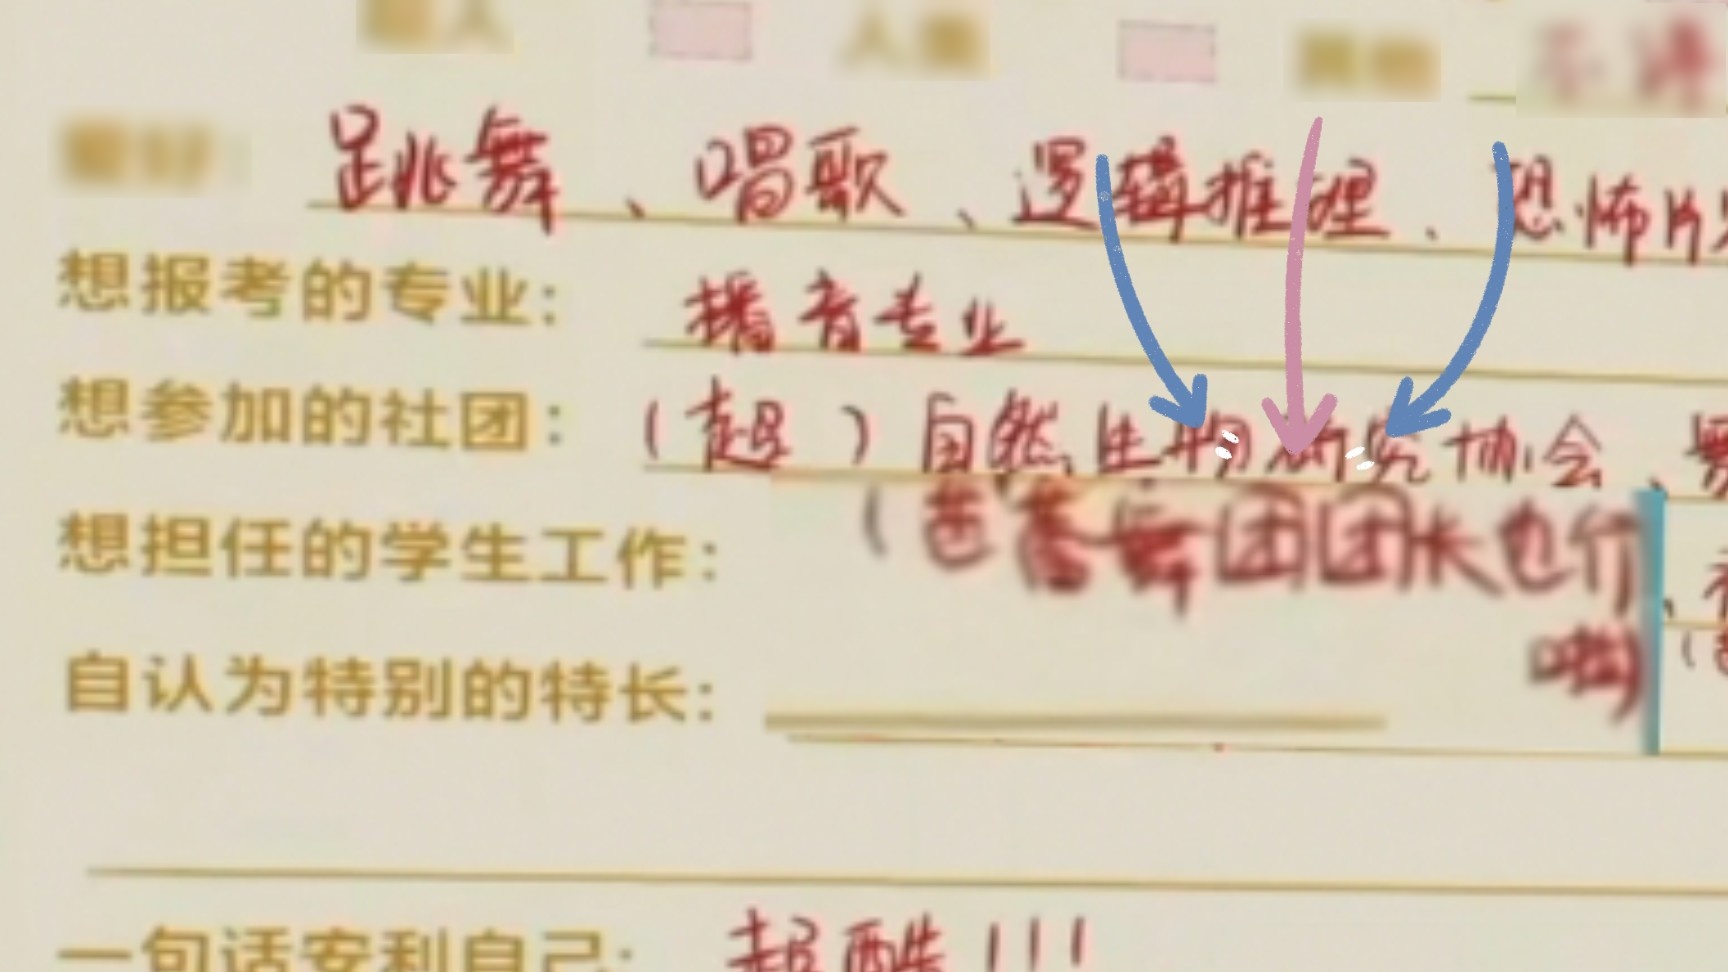 跳舞、唱歌、逻辑推理、恐怖片
想报考的专业：播音专业
想参加的社团：（超）自然生物研究协会、
（芭蕾舞团团长也行
想担任的学生工作：
啦）
自认为特别的特长：
一句话安利自己：超酷!!!